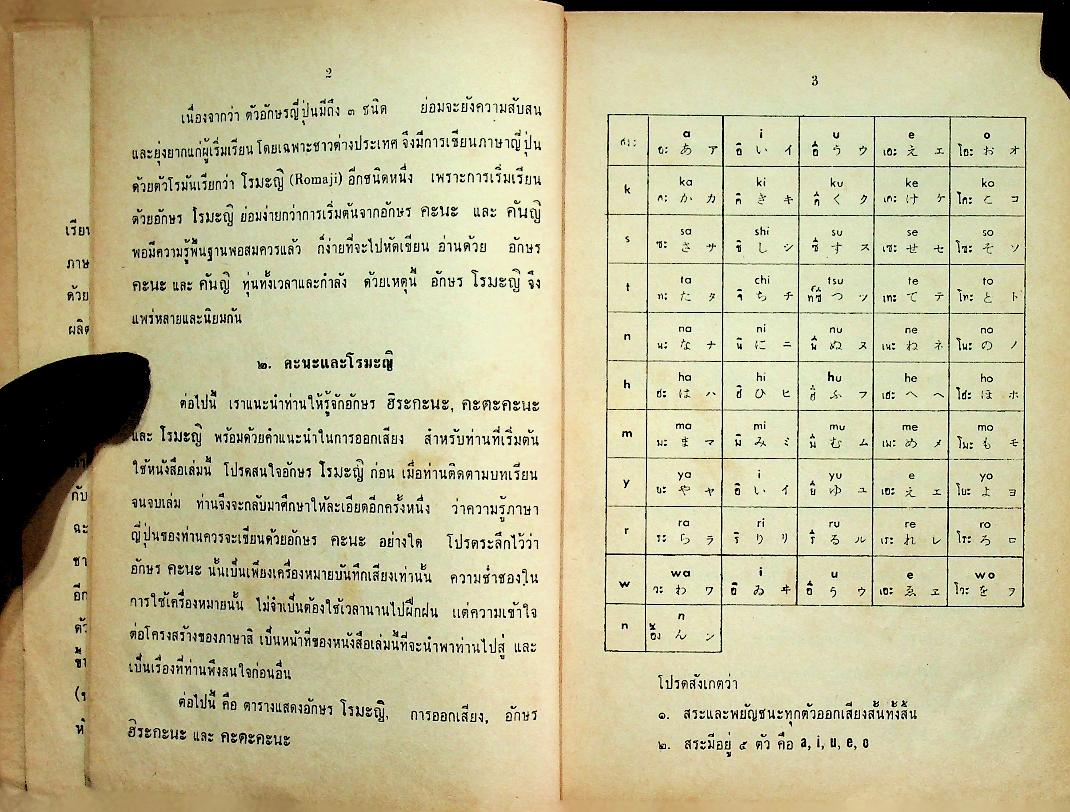 2
เนื่องจากว่า ตัวอักษรญี่ปุ่นมีถึง ๓ ชนิด ย่อมจะยังความสับสน
และยุ่งยากแก่ผู้เริ่มเรียน โดยเฉพาะชาวต่างประเทศ จึงมีการเขียนภาษาญี่ปุ่น
ด้วยตัวโรมันเรียกว่า โรมะญิ (Romaji) อีกชนิดหนึ่ง เพราะการเริ่มเรียน
ด้วยอักษร โรมะญิ ย่อมง่ายกว่าการเริ่มต้นจากอักษร คะนะ และ คันญิ
พอมีความรู้พื้นฐานพอสมควรแล้ว ก็ง่ายที่จะไปหัดเขียน อ่านด้วย อักษร
คะนะ และ คันญิ ทุ่นทั้งเวลาและกำลัง ด้วยเหตุนี้ อักษร โรมะญิ จึง
แพร่หลายและนิยมกัน
๒. คะนะและโรมะญิ
ต่อไปนี้ เราแนะนำท่านให้รู้จักอักษร ฮิระกะนะ, คะตะคะนะ
และ โรมะญิ พร้อมด้วยคำแนะนำในการออกเสียง สำหรับท่านที่เริ่มต้น
ใช้หนังสือเล่มนี้ โปรดสนใจอักษร โรมะญิ ก่อน เมื่อท่านติดตามบทเรียน
จนจบเล่ม ท่านจึงจะกลับมาศึกษาให้ละเอียดอีกครั้งหนึ่ง ว่าความรู้ภาษา
ญี่ปุ่นของท่านควรจะเขียนด้วยอักษร คะนะ อย่างใด โปรดระลึกไว้ว่า
อักษร คะนะ นั้นเป็นเพียงเครื่องหมายบันทึกเสียงเท่านั้น ความช่ำชองใน
การใช้เครื่องหมายนั้น ไม่จำเป็นต้องใช้เวลานานไปฝึกฝน แต่ความเข้าใจ
ต่อโครงสร้างของภาษาสิ เป็นหน้าที่ของหนังสือเล่มนี้ที่จะนำพาท่านไปสู่ และ
เป็นเรื่องที่ท่านพึงสนใจก่อนอื่น
ต่อไปนี้ คือ ตารางแสดงอักษร โรมะญิ, การออกเสียง, อักษร
ฮิระกะนะ และ คะตะคะนะ
3
a i u e o
อะ あ ア อิ い イ อึ う ウ เอะ え エ โอะ お オ
k ka ki ku ke ko
คะ か カ คิ き キ คึ く ク เคะ け ケ โคะ こ コ
s sa shi su se so
ซะ さ サ ชิ し シ ซึ す ス เซะ せ セ โซะ そ ソ
t ta chi tsu te to
ทะ た タ จิ ち チ ทซึ つ ツ เทะ て テ โทะ と ト
n na ni nu ne no
นะ な ナ นิ に ニ นึ ぬ ヌ เนะ ね ネ โนะ の ノ
h ha hi hu he ho
ฮะ は ハ ฮิ ひ ヒ ฮึ ふ フ เฮะ へ ヘ โฮะ ほ ホ
m ma mi mu me mo
มะ ま マ มิ み ミ มึ む ム เมะ め メ โมะ も モ
y ya i yu e yo
ยะ や ヤ อิ い イ ยึ ゆ ユ เอะ え エ โยะ よ ヨ
r ra ri ru re ro
ระ ら ラ ริ り リ รึ る ル เระ れ レ โระ ろ ロ
w wa i u e wo
วะ わ ワ อิ ゐ ヰ อึ う ウ เอะ ゑ ヱ โวะ を ヲ
n n
อึง ん ン
โปรดสังเกตว่า
๑. สระและพยัญชนะทุกตัวออกเสียงสั้นทั้งสิ้น
๒. สระมีอยู่ ๕ ตัว คือ a, i, u, e, o